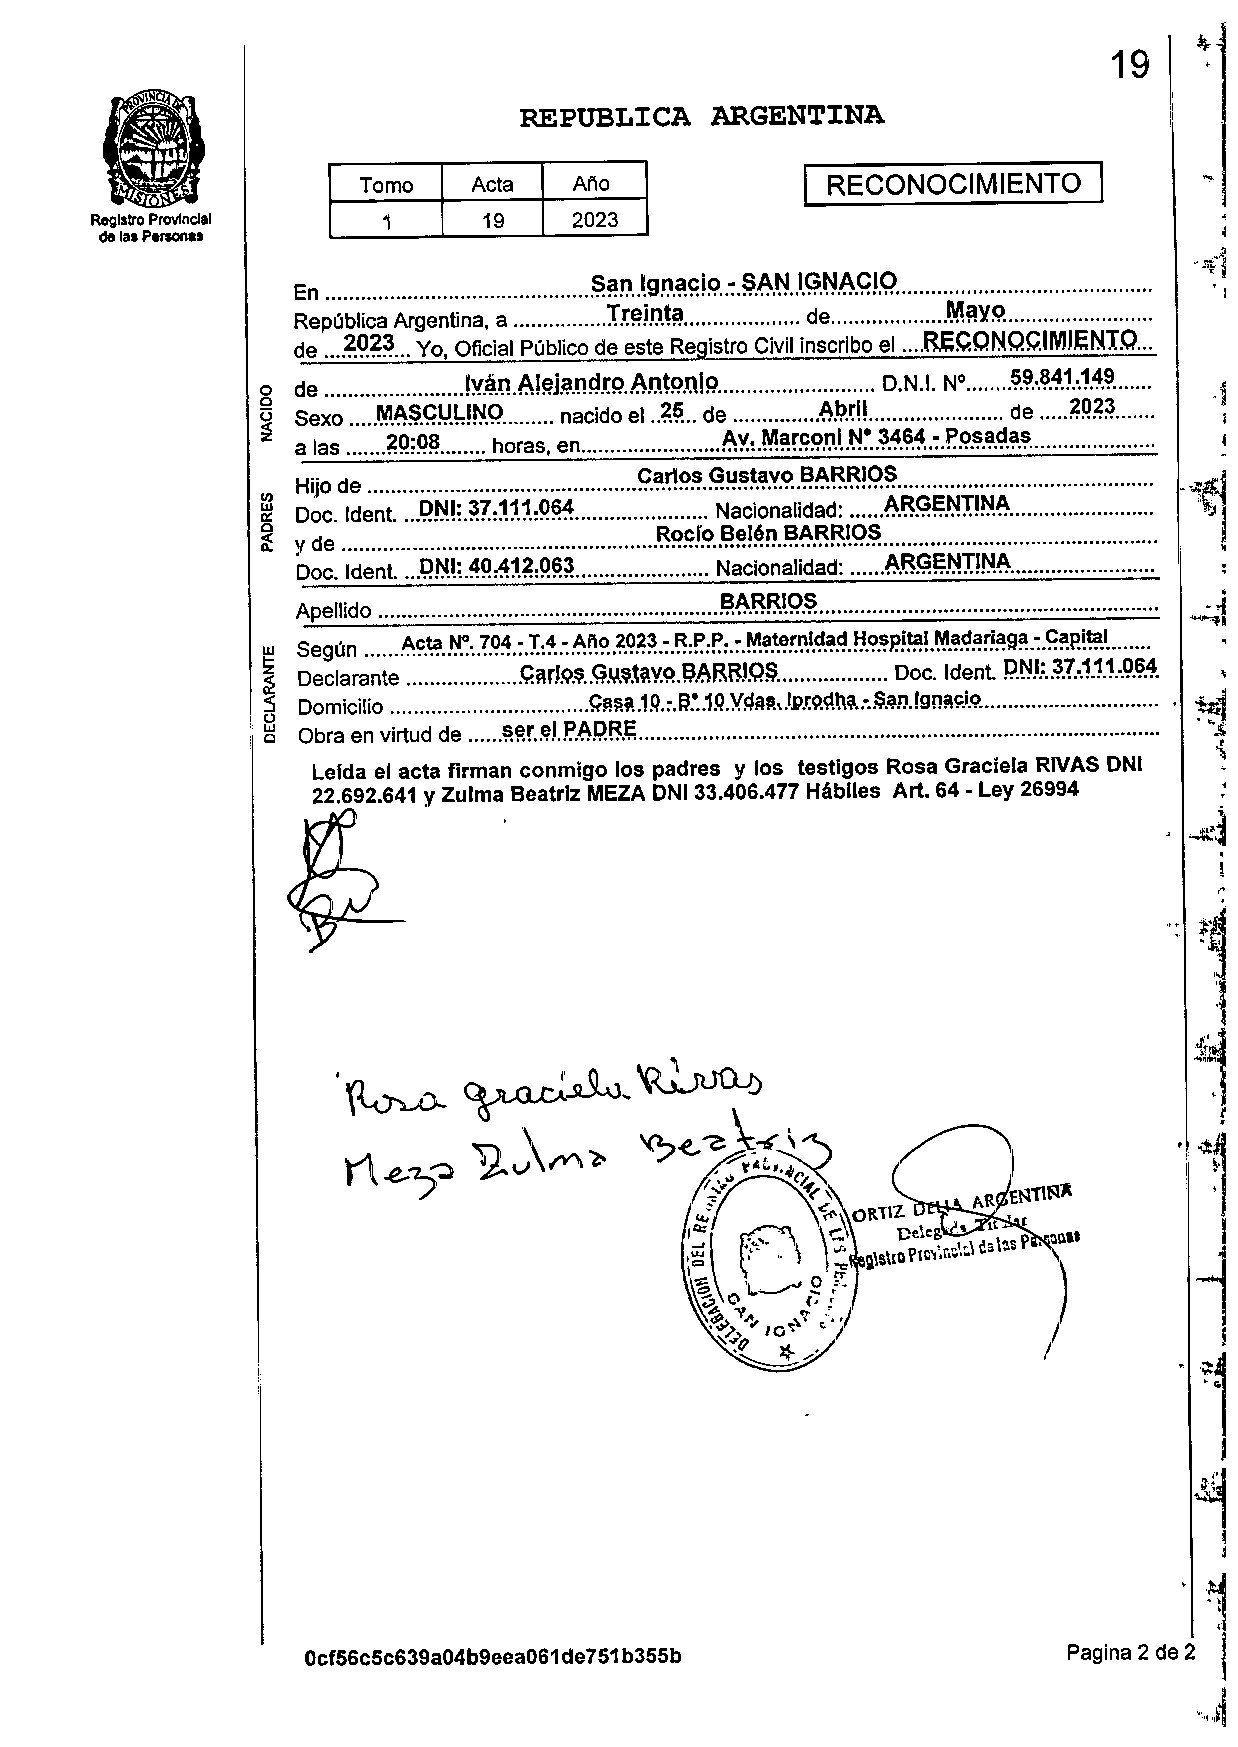 19
PROVINCIA DE
MISIONES
Registro Provincial
de las Personas
REPUBLICA ARGENTINA
Tomo Acta Año
1 19 2023
RECONOCIMIENTO
En San Ignacio - SAN IGNACIO
República Argentina, a Treinta de Mayo
de 2023 Yo, Oficial Público de este Registro Civil inscribo el RECONOCIMIENTO
NACIDO
de Iván Alejandro Antonio D.N.I. Nº 59.841.149
Sexo MASCULINO nacido el 25 de Abril de 2023
a las 20:08 horas, en Av. Marconi Nº 3464 - Posadas
PADRES
Hijo de Carlos Gustavo BARRIOS
Doc. Ident. DNI: 37.111.064 Nacionalidad: ARGENTINA
y de Rocío Belén BARRIOS
Doc. Ident. DNI: 40.412.063 Nacionalidad: ARGENTINA
Apellido BARRIOS
DECLARANTE
Según Acta Nº. 704 - T.4 - Año 2023 - R.P.P. - Maternidad Hospital Madariaga - Capital
Declarante Carlos Gustavo BARRIOS Doc. Ident. DNI: 37.111.064
Domicilio Casa 10 - Bº 10 Vdas. Iprodha - San Ignacio
Obra en virtud de ser el PADRE
Leída el acta firman conmigo los padres y los testigos Rosa Graciela RIVAS DNI
22.692.641 y Zulma Beatriz MEZA DNI 33.406.477 Hábiles Art. 64 - Ley 26994
Rosa Graciela Rivas
Meza Zulma Beatriz
DELEGACION DEL REGISTRO PROVINCIAL DE LAS PERSONAS
SAN IGNACIO
ORTIZ DELIA ARGENTINA
Delegada Titular
Registro Provincial de las Personas
0cf56c5c639a04b9eea061de751b355b
Pagina 2 de 2